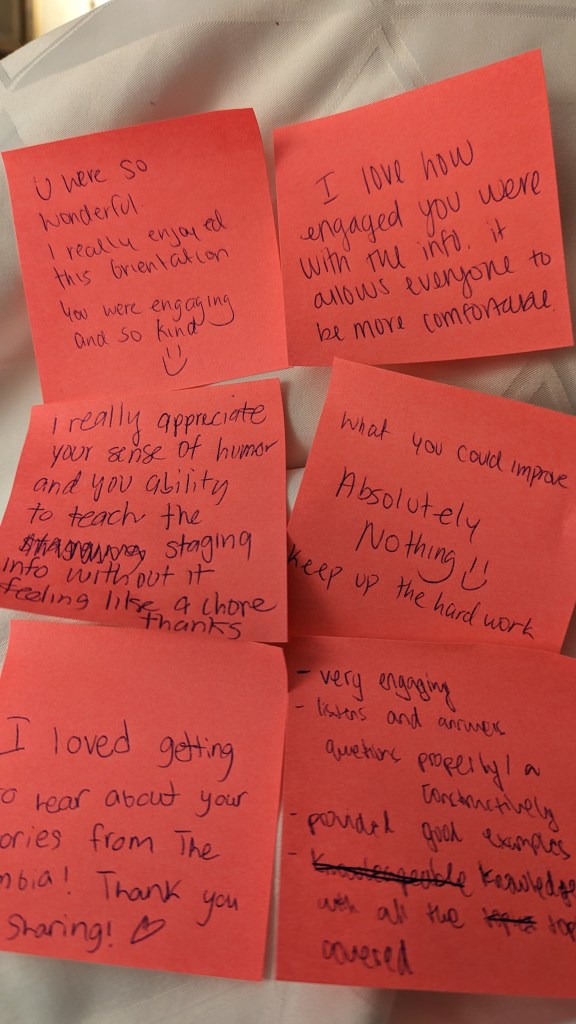 U were so
wonderful.
I really enjoyed
this Orientation
You were engaging
and so kind
I love how
engaged you were
with the info. it
allows everyone to
be more comfortable.
I really appreciate
your sense of humor
and you ability
to teach the
staging
info without it
feeling like a chore
thanks
What you could improve
Absolutely
Nothing
keep up the hard work
I loved getting
o hear about your
ories from The
mbia! Thank you
Sharing!
- very engaging
- listens and answers
questions properly/
constructively
- provided good examples
- Knowledge
with all the top
covered